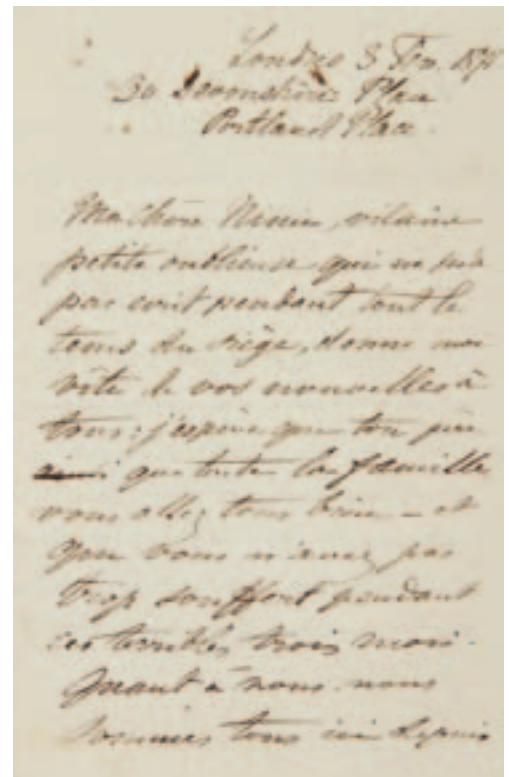 Londres 3 Fev. 1871
30 Devonshire Place
Portland Place.
Ma chère Ninie, vilaine
petite oublieuse qui ne m'a
pas écrit pendant tout le
tems du siège, donne moi
vite de vos nouvelles à
tous; j'espère que ton père
ainsi que toute la famille
vous allez tous bien - et
que vous n'avez pas
trop souffert pendant
ces terribles trois mois.
Quant à nous nous
sommes tous ici depuis